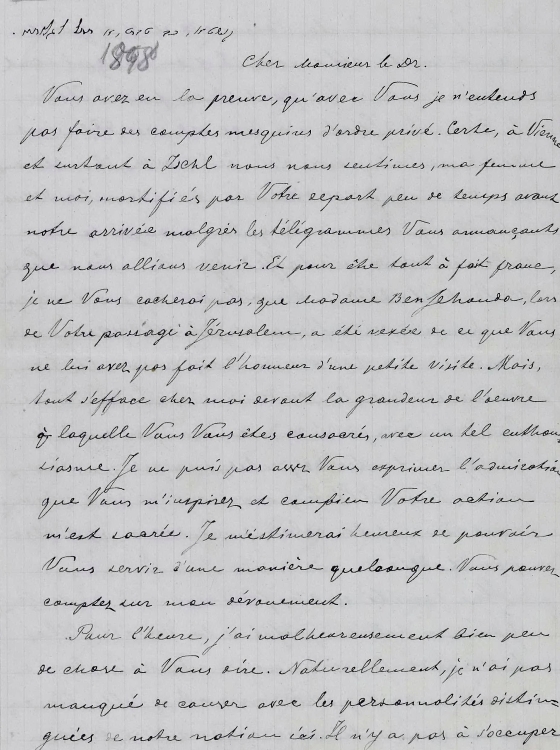 1898
Cher Monsieur le Dr.
Vous avez eu la preuve, qu'avec Vous je n'entends
pas faire des comptes mesquins d'ordre privé. Certe, à Vienne
et surtout à Ischl nous nous sentimes, ma femme
et moi, mortifiés par Votre depart peu de temps avant
notre arrivée malgrés les télégrammes Vous annonçants
que nous allions venir. Et pour être tout à fait franc,
je ne Vous cacherai pas, que Madame Ben Jehouda, lors
de Votre passage à Jérusalem, a été vexée de ce que Vous
ne lui avez pas fait l'honneur d'une petite visite. Mais,
tout s'efface chez moi devant la grandeur de l'oeuvre
à laquelle Vous Vous êtes consacrés, avec un tel enthou-
siasme. Je ne puis pas assez Vous exprimer l'admiration
que Vous m'inspirez et combien Votre action
m'est sacrée. Je m'éstimerai heureux de pouvoir
Vous servir d'une manière quelconque. Vous pouvez
comptez sur mon dévouement.
Pour l'heure, j'ai malheureusement bien peu
de chose à Vous dire. Naturellement, je n'ai pas
manqué de causer avec les personnalités distin-
guées de notre nation ici. Il n'y a pas à s'occuper